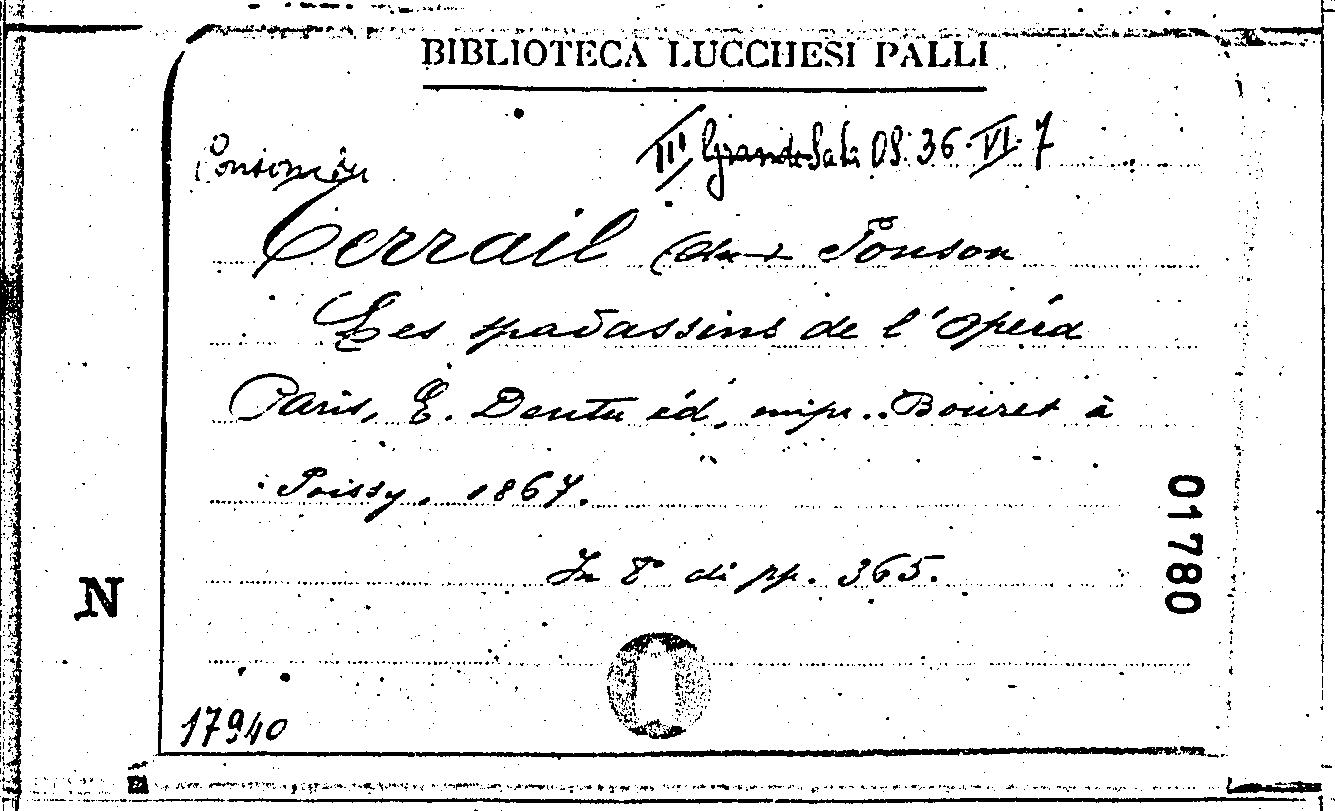 BIBLIOTECA LUCCHESI PALLI
III Grande Sala 08. 36. VI. 7
Terrail (du) Ponson
Les spadassins de l'Opéra
Paris, E. Dentu éd, impr. Bouret à
Poissy, 1867.
In 8° di pp. 365.
01780
N
17940